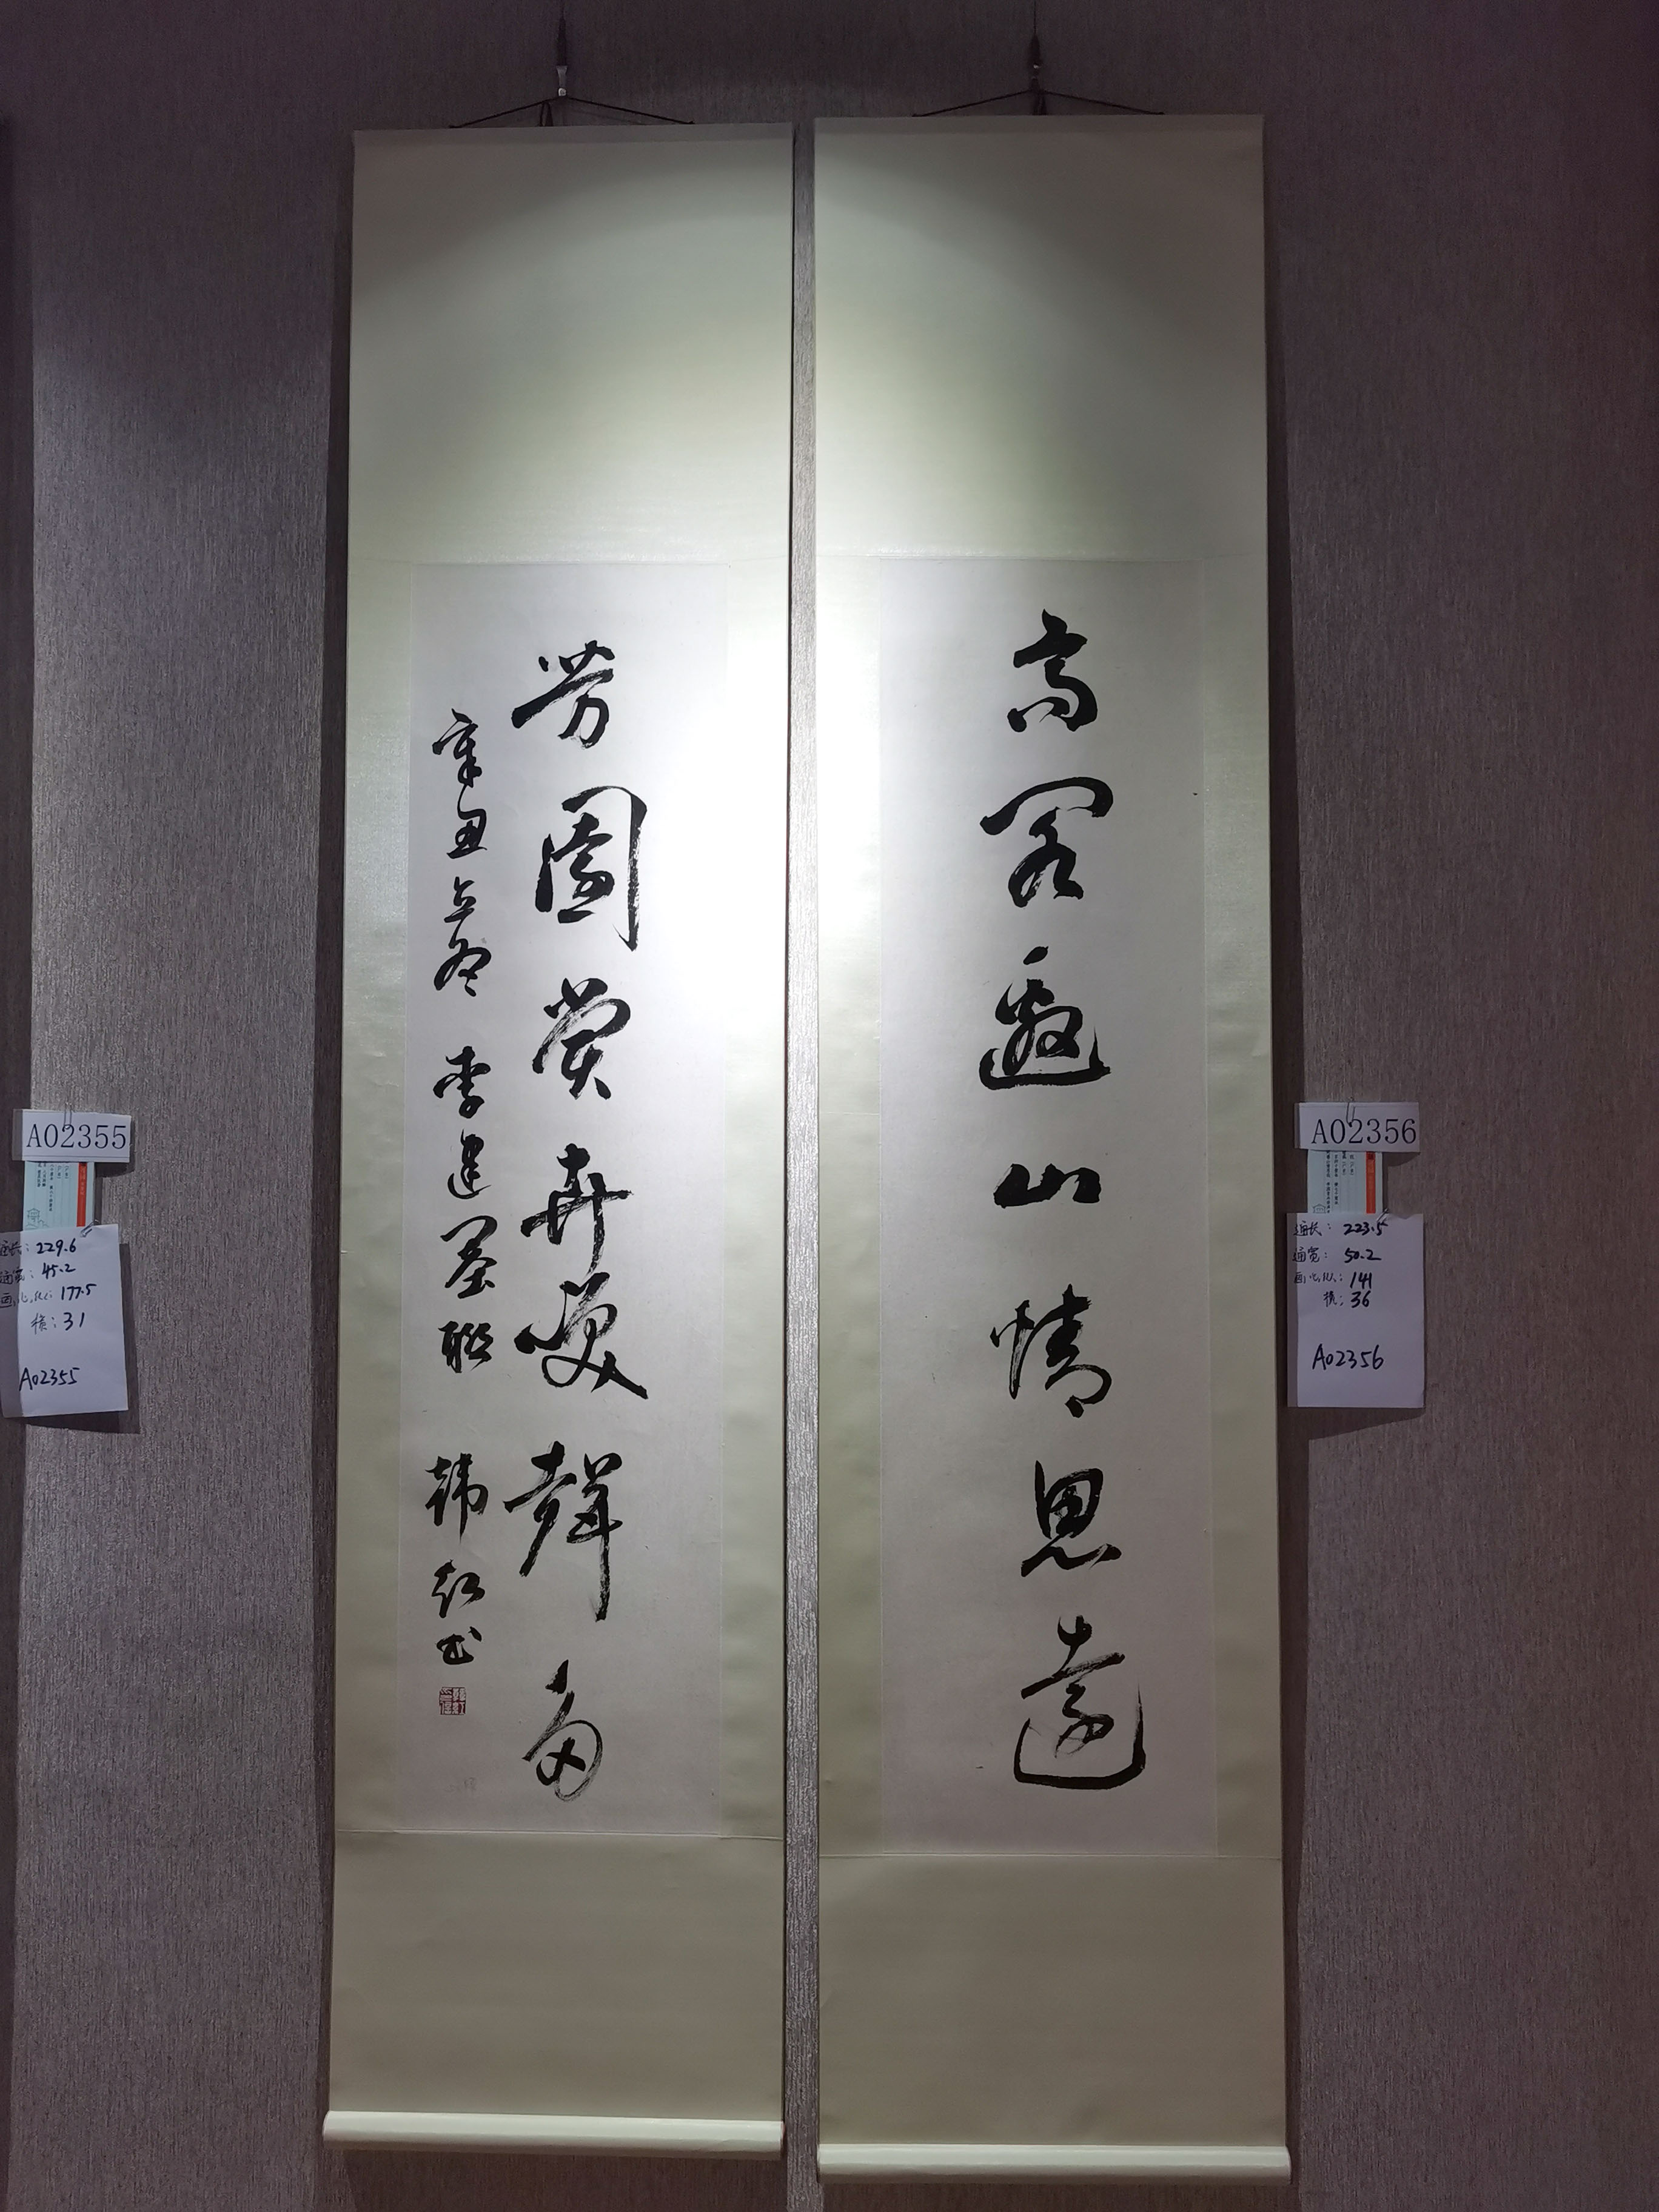 高阁邀山情思远
芳園賞卉笑聲多
辛丑之春 李建墨聯 韩红书
A02355
通长：229.6
通宽：45.2
画心纵：177.5
横：31
A02355
A02356
通长：223.5
通宽：50.2
画心纵：141
横：36
A02356